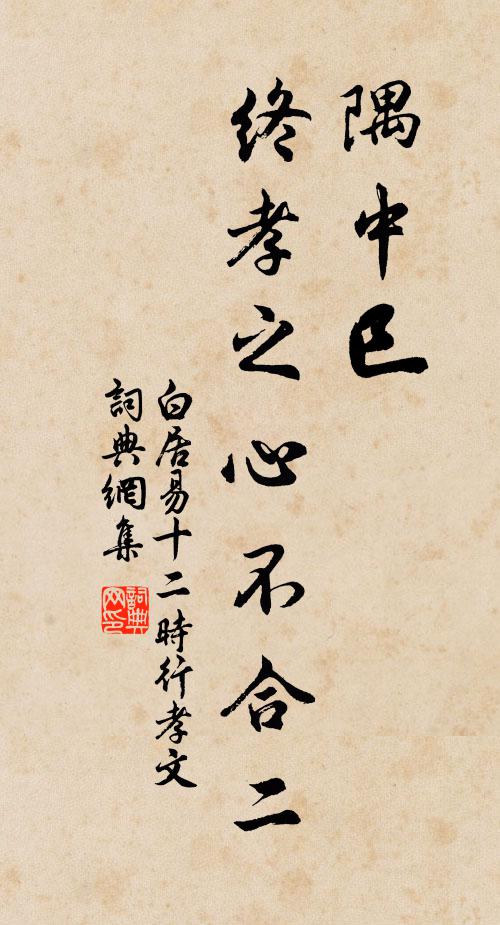 隅中巳
終孝之心不合二
白居易十二時行孝文
詞典網集
詞典
网印